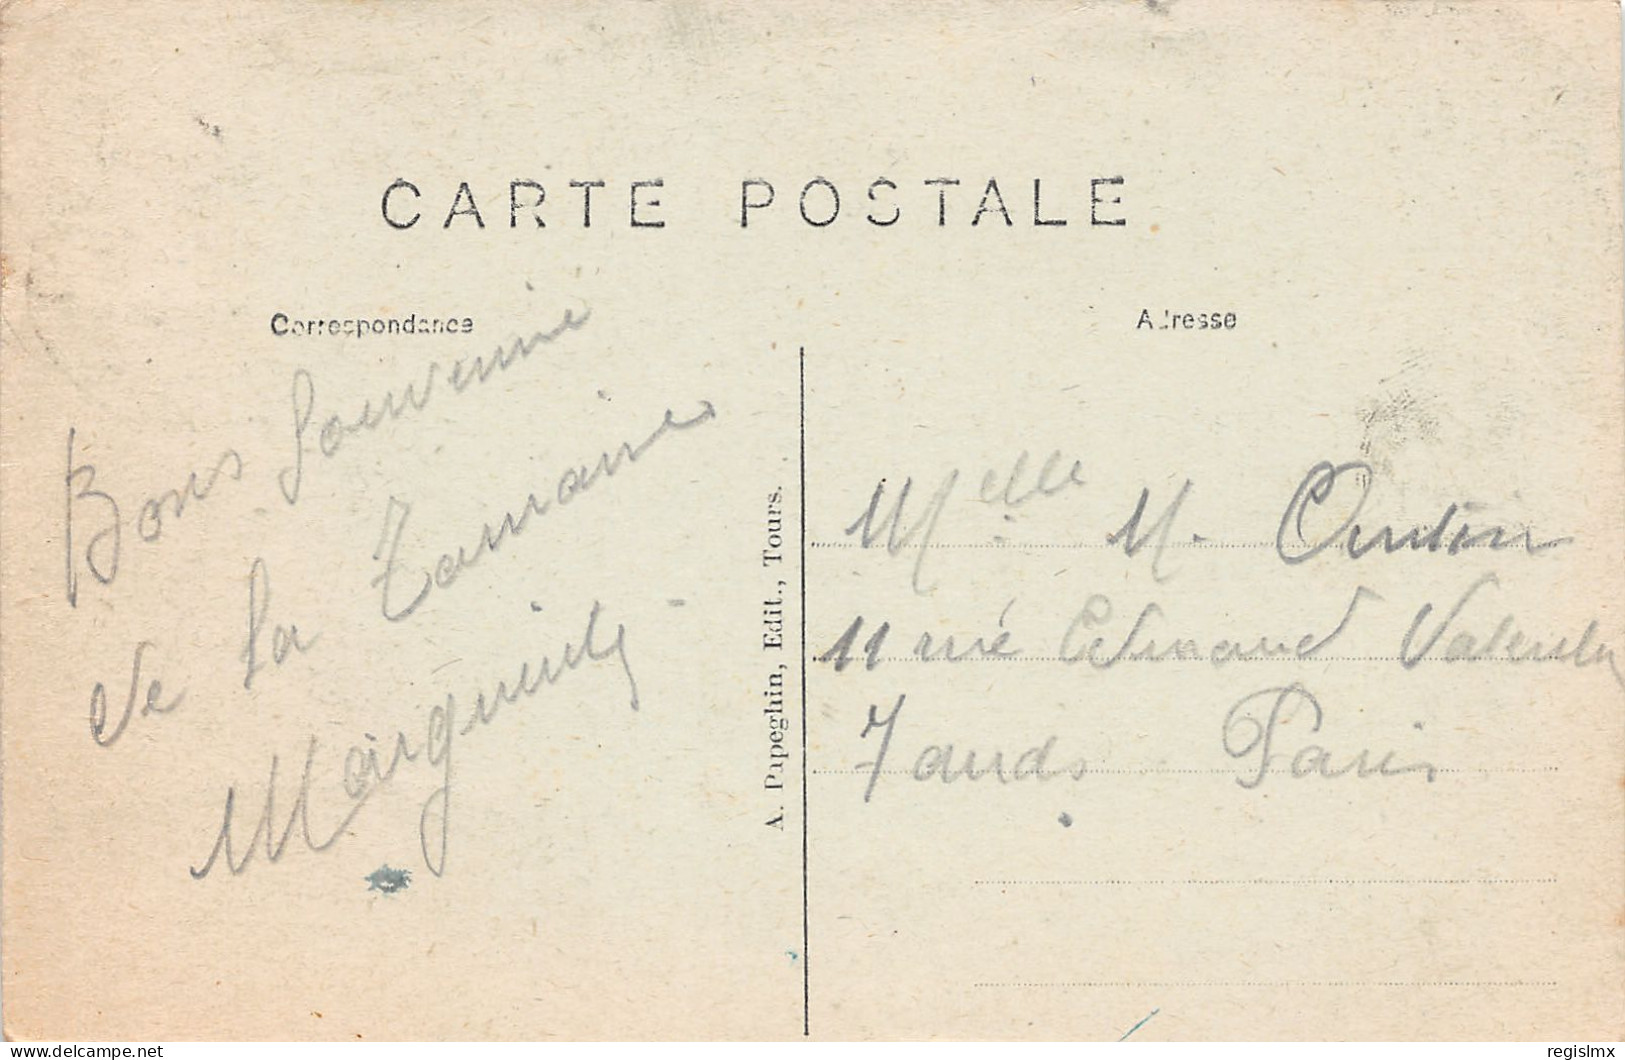 CARTE POSTALE
Correspondance
Adresse
Bons Souvenirs
de la Touraine
Marguerite
A. Papeghin, Edit., Tours.
Melle M.
11 rue Edmond Valentin
7 Paris
delcampe.net
regislmx